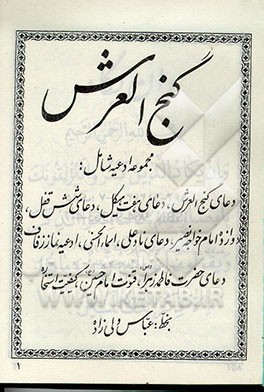 گنج العرش
مجموعه ادعیه شامل:
دعای گنج العرش، دعای هفت هیکل، دعای شش قفل،
دوازده امام خواجه نصیر، دعای نادعلی، اسماءالحسنی، ادعیه نماز زفاف
دعای حضرت فاطمه زهرا(س)، قنوت امام حسین(ع)، کیفیت استخاره
بخط: عباس ولی زاده
۱